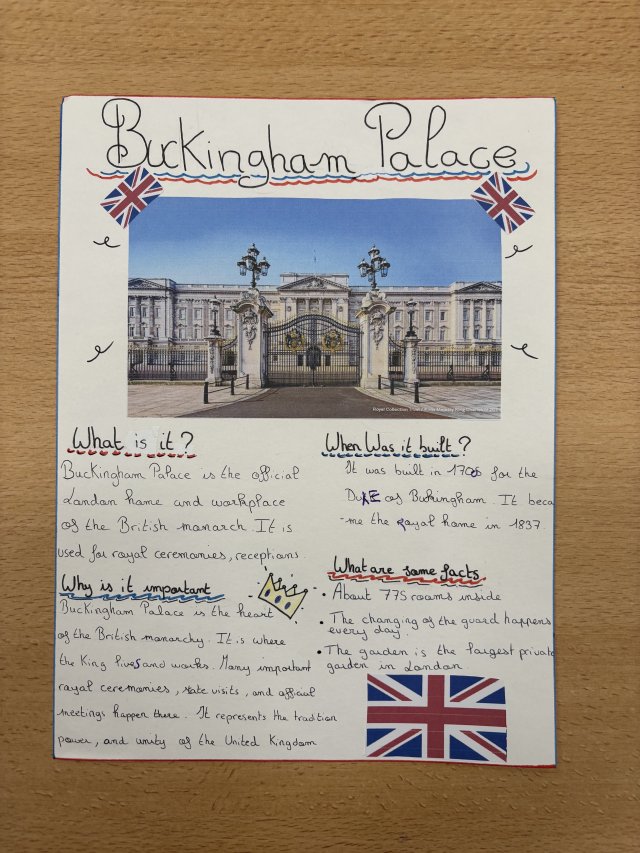 Buckingham Palace
What is it?
Buckingham Palace is the official
London home and workplace
of the British monarch. It is
used for royal ceremonies, receptions.
Why is it important
Buckingham Palace is the heart
of the British monarchy. It is where
the King lives and works. Many important
royal ceremonies, state visits, and official
meetings happen there. It represents the tradition
power, and unity of the United Kingdom
When Was it built?
It was built in 1705 for the
DukE of Buckingham. It beca
-me the royal home in 1837.
What are some facts
• About 775 rooms inside
• The changing of the guard happens
every day.
• The garden is the largest private
garden in London.